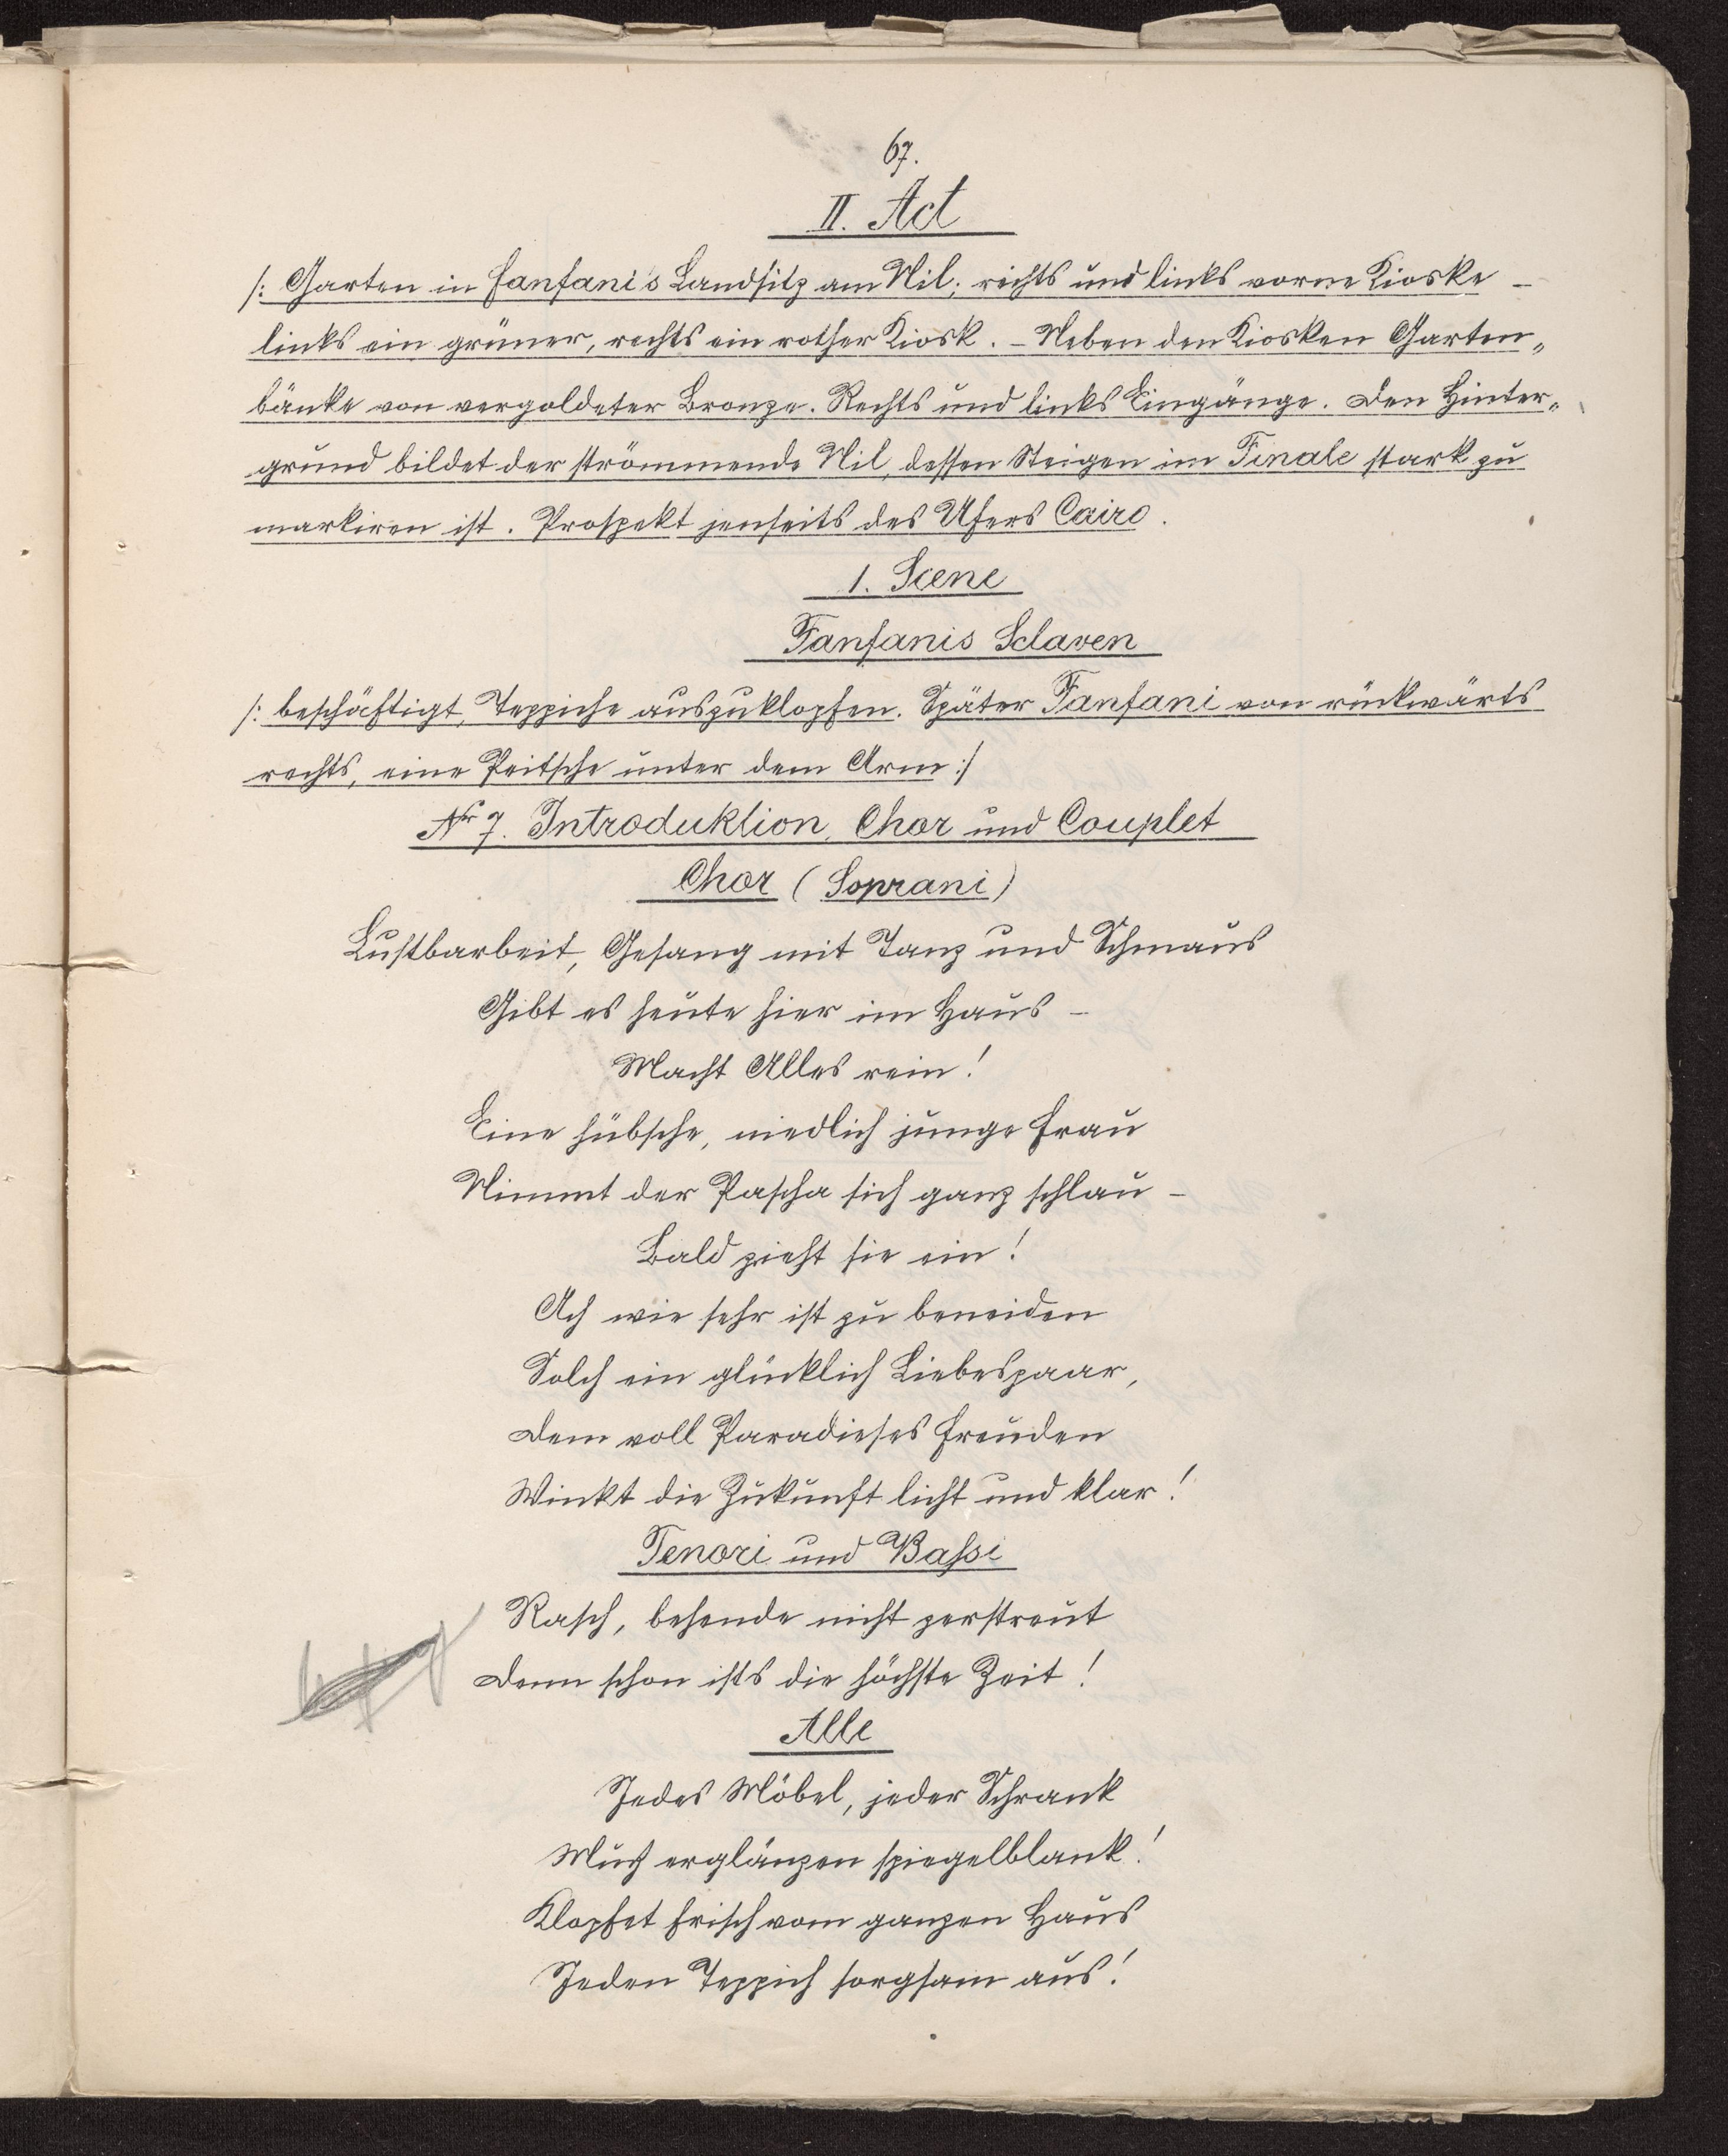 67.
II. Act
/: Garten in Fanfani's Landsitz am Nil; rechts und links vorne Kioske –
links ein grüner, rechts ein rother Kiosk. – Neben den Kiosken Garten„
bänke von vergoldeter Bronze. Rechts und links Eingänge. Den Hinter„
grund bildet der strömmende Nil, dessen Steigen im Finale stark zu
markiren ist. Prospekt jenseits des Ufers Cairo.
1. Scene
Fanfanis Sclaven
/: beschäftigt, Teppiche auszuklopfen. Später Fanfani von rückwärts
rechts, eine Peitsche unter dem Arm :/
Nr 7. Introduktion, Chor und Couplet
Chor (Soprani)
Lustbarbeit, Gesang mit Tanz und Schmaus
Gibt es heute hier im Haus –
Macht Alles rein!
Eine hübsche, niedlich junge Frau
Nimmt der Pascha sich ganz schlau –
Bald zieht sie ein!
Ach wie sehr ist zu beneiden
Solch ein glücklich Liebespaar,
Dem voll Paradieses Freuden
Winkt die Zukunft licht und klar!
Tenori und Bassi
Rasch, behende nicht zerstreut
Denn schon ists die höchste Zeit!
Alle
Jedes Möbel, jeder Schrank
Muß erglänzen spiegelblank!
Klopfet frisch vom ganzen Haus
Jeden Teppich sorgsam aus!